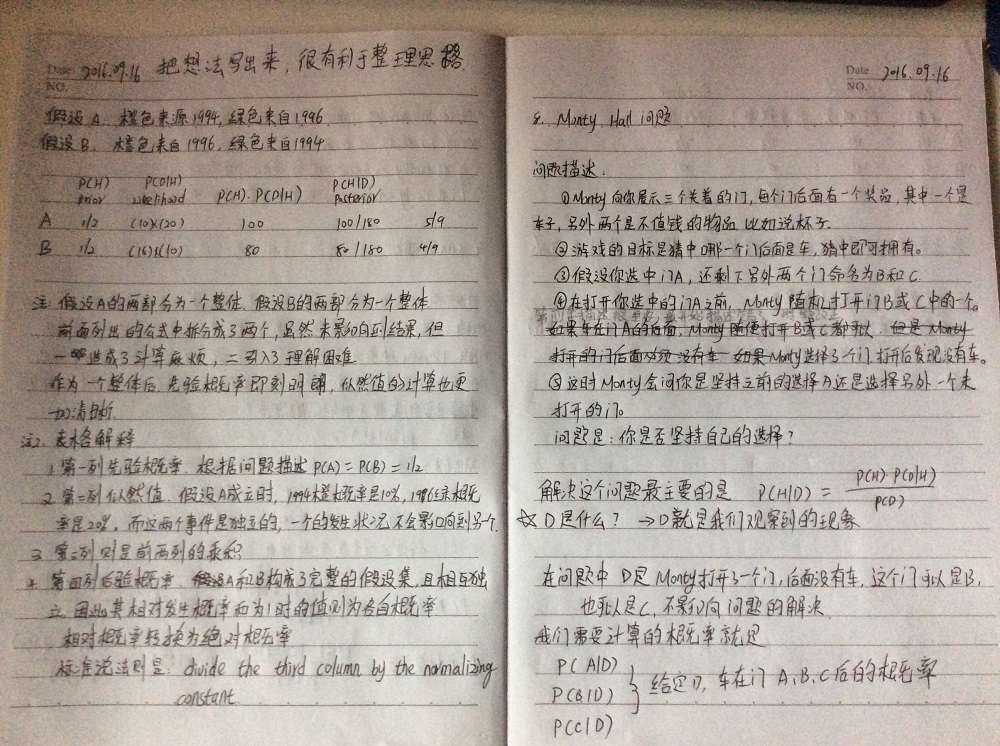 Date 2016.09.16 把想法写出来，很有利于整理思路
NO.
假设A. 橙色来源1994, 绿色来自1996
假设B. 橙色来自1996, 绿色来自1994
P(H) P(D|H) P(H|D)
prior likelihood P(H)·P(D|H) posterior
A 1/2 (10)(20) 100 100/180 5/9
B 1/2 (10) 80 80/180 4/9
注: 假设A的两部分为一个整体. 假设B的两部分为一个整体
前面列出的公式中拆分成了两个, 虽然未影响到结果, 但
一 造成了计算麻烦, 二 引入了理解困难
作为一个整体后, 先验概率即刻明朗, 似然值的计算也更
加清晰.
注2. 表格解释
1. 第一列先验概率. 根据问题描述P(A)=P(B)=1/2
2. 第二列似然值. 假设A成立时, 1994橙概率是10%, 1996绿概
率是20%, 而这两个事件是独立的, 一个的发生状况不会影响到另一个.
3. 第三列则是前两列的乘积
4. 第四列后验概率. 假设A和B构成了完整的假设集, 且相互独
立. 因此其相对发生概率和为1时的值则为各自概率
相对概率转换为绝对概率
标准说法则是: divide the third column by the normalizing
constant.
Date 2016.09.16
NO.
Monty Hall 问题
问题描述:
①Monty向你展示三个关着的门, 每个门后面有一个奖品, 其中一个是
车子, 另外两个是不值钱的物品 比如说杯子.
②游戏的目标是猜中哪一个门后面是车, 猜中即可拥有。
③假设你选中门A, 还剩下另外两个门命名为B和C.
④在打开你选中的门A之前, Monty随机打开门B或C中的一个。
如果车在门A的后面, Monty随便打开B或C都可以 但是Monty
打开的门后面必须没有车 如果Monty选择了个门, 打开后发现没有车。
⑤这时Monty会问你是坚持之前的选择A还是选择另外一个未
打开的门。
问题是: 你是否坚持自己的选择?
解决这个问题最主要的是 P(H|D) = P(H)·P(D|H)
P(D)
☆ D是什么? → D就是我们观察到的现象
在问题中 D是Monty打开了一个门, 后面没有车. 这个门可以是B,
也可以是C, 不影响问题的解决.
我们需要计算的概率就是
P(A|D)
P(B|D) } 给定D, 车在门A、B、C后的概率
P(C|D)